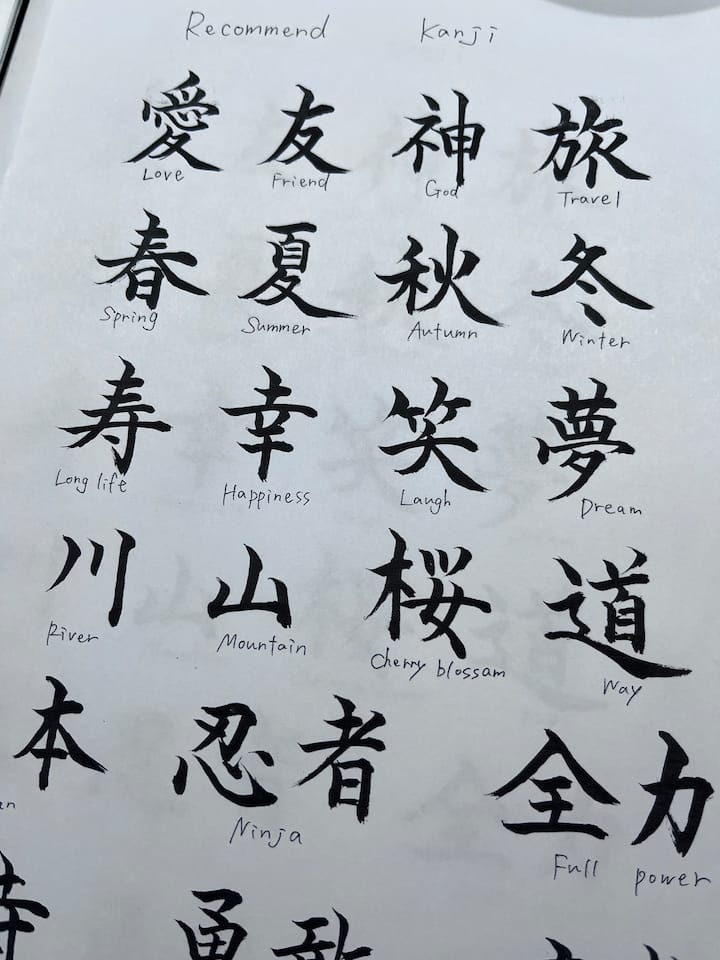 Recommend Kanji
愛 友 神 旅
Love Friend God Travel
春 夏 秋 冬
Spring Summer Autumn Winter
寿 幸 笑 夢
Long life Happiness Laugh Dream
川 山 桜 道
River Mountain cherry blossam Way
本 忍者 全力
an Ninja Full power
勇敢